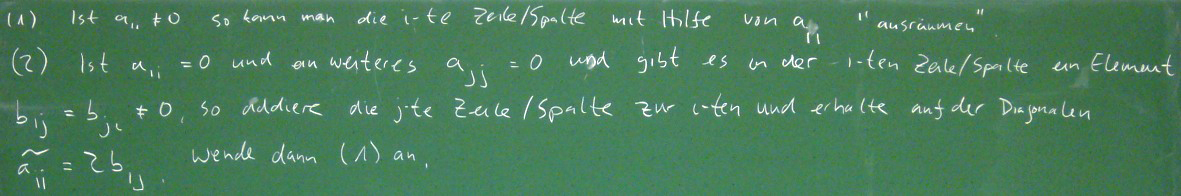 (1) Ist a_ii ≠ 0 so kann man die i-te Zeile/Spalte mit Hilfe von a_ii "ausräumen"
(2) Ist a_ii = 0 und ein weiteres a_jj = 0 und gibt es in der i-ten Zeile/Spalte ein Element
b_ij = b_ji ≠ 0, so addiere die j-te Zeile/Spalte zur i-ten und erhalte auf der Diagonalen
ã_ii = 2b_ij. Wende dann (1) an.